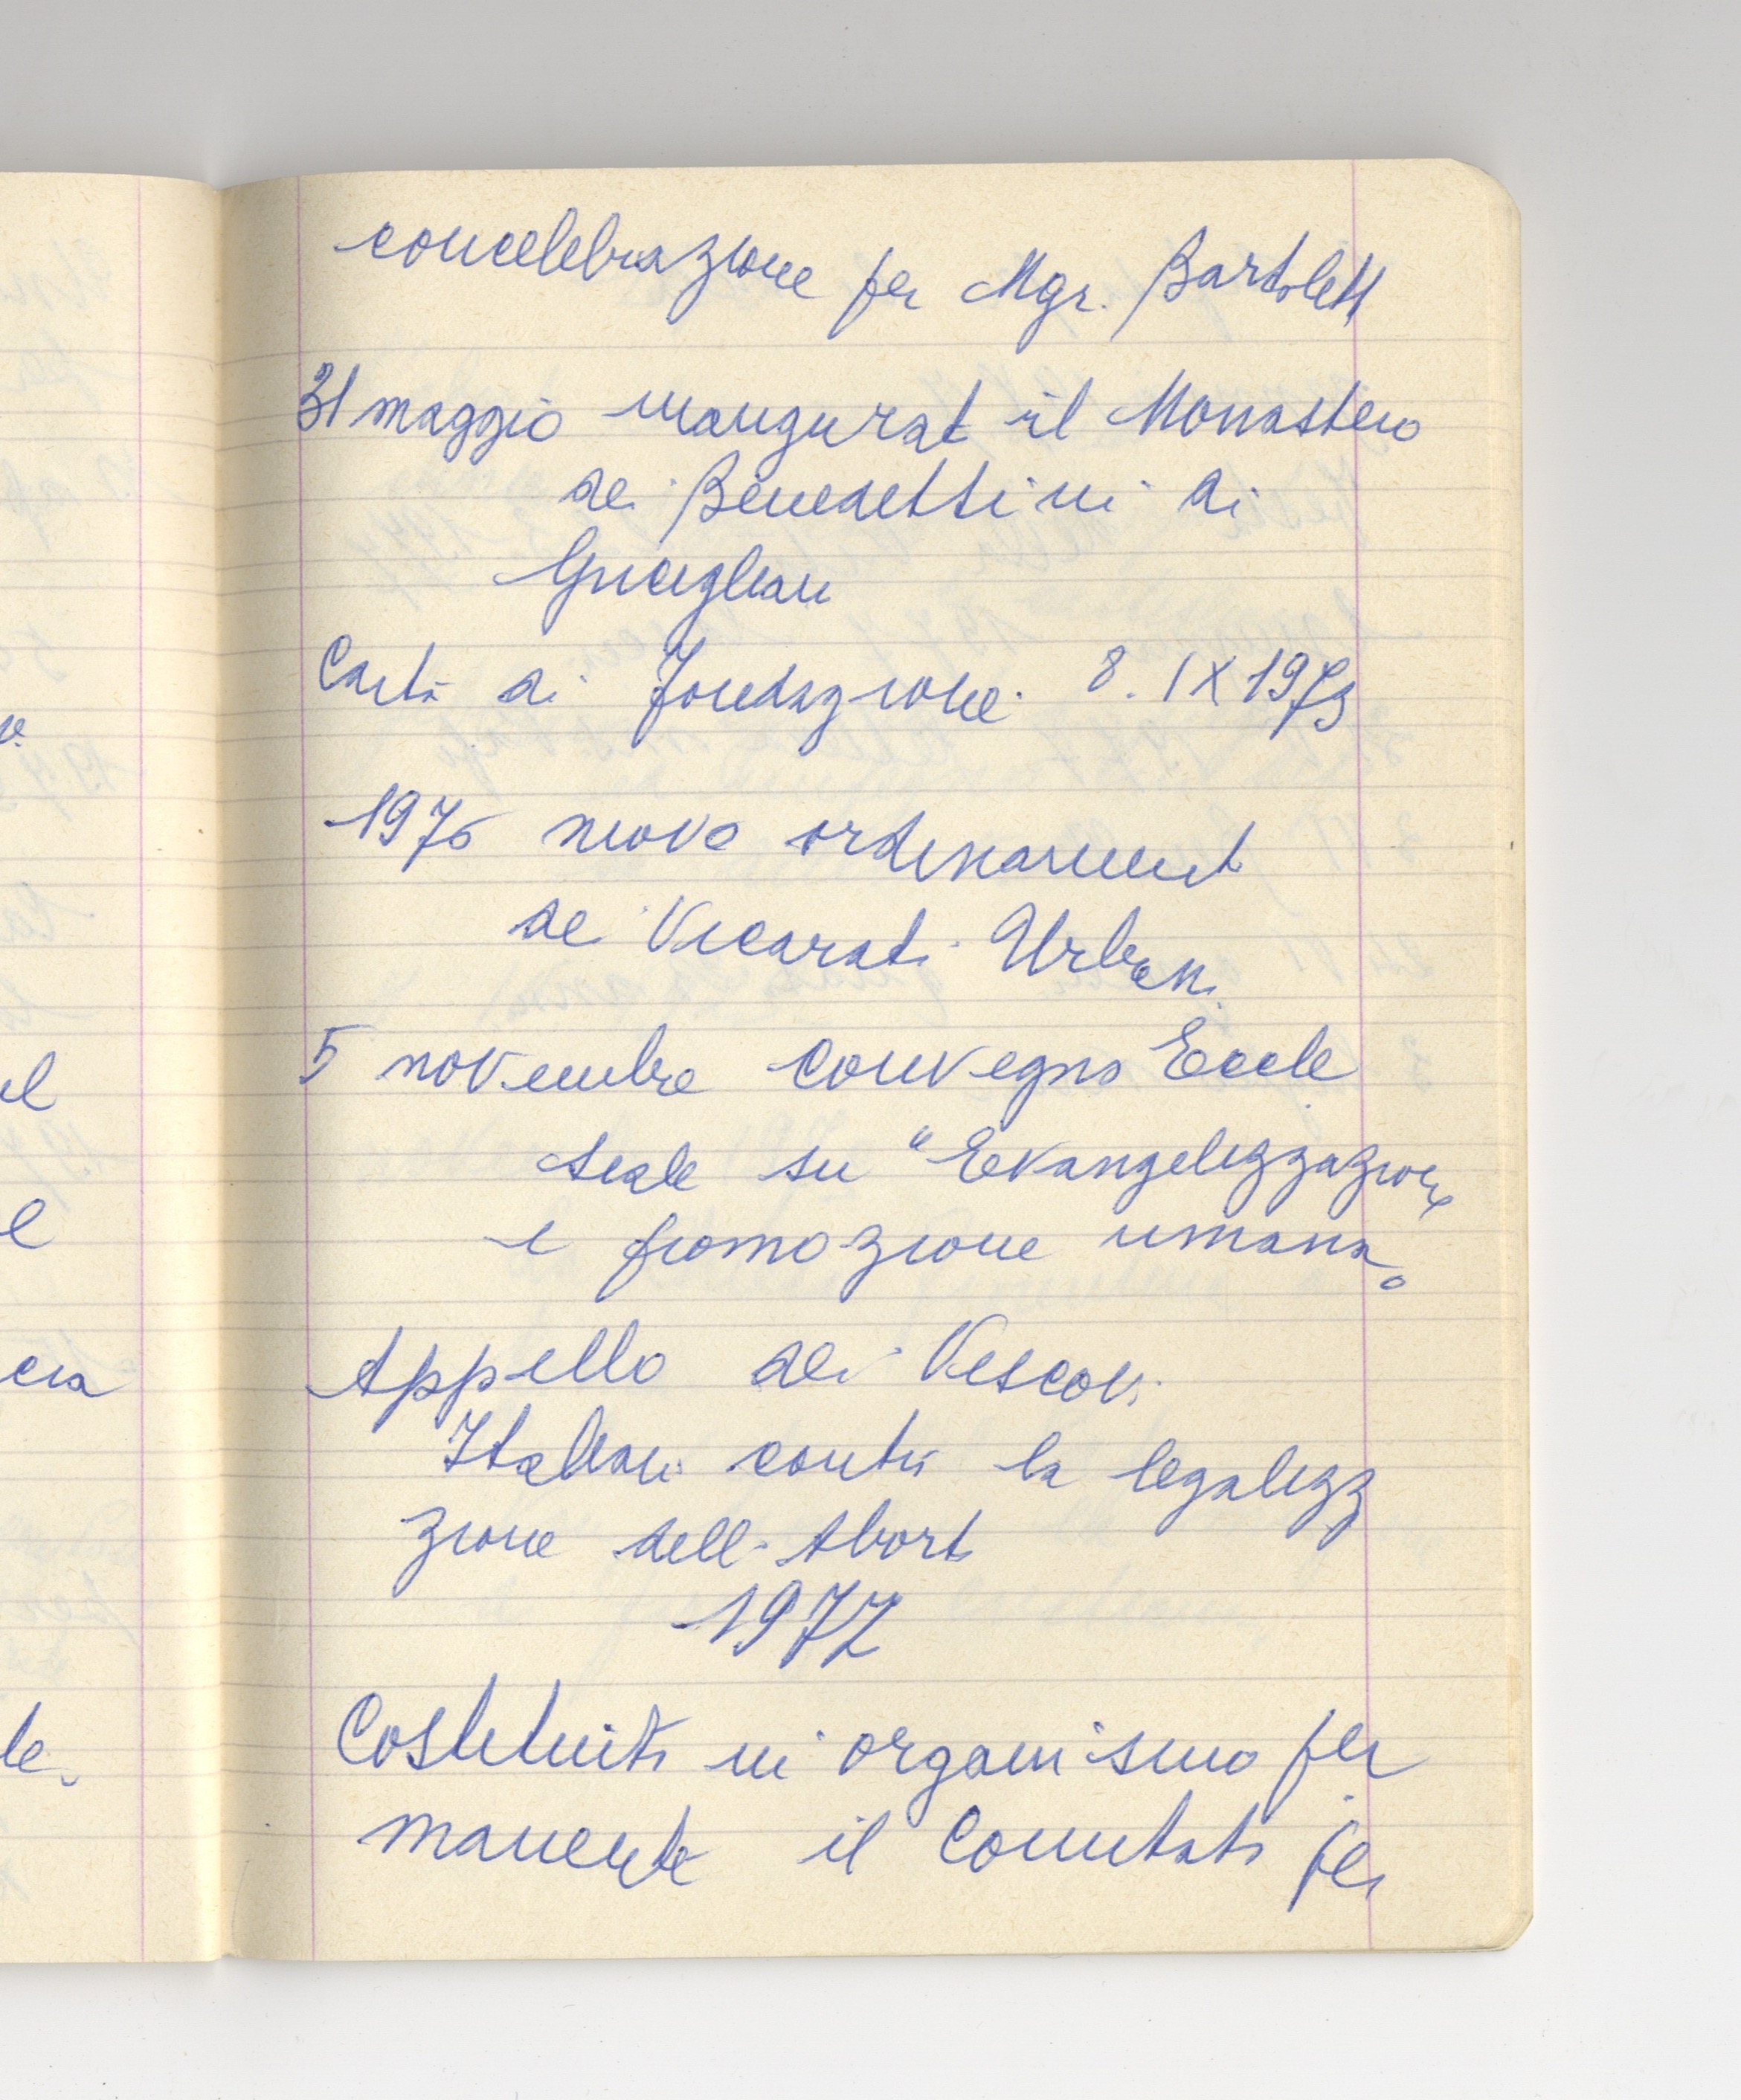 concelebrazione per Mgr. Bartolett
31 maggio inaugurat il Monastero
dei Benedettini di
Carta di Fondazione 8. IX 1973
1976 nuovo ordinament
dei Vicarati Urbani
5 novembre Convegno Eccle
siale su "Evangelizzazione
e promozione umana
Appello dei Vescovi
Italiani contro la legalizz
zione dell'Aborto
1977
Costituito in organismo per
manente il Comitato per